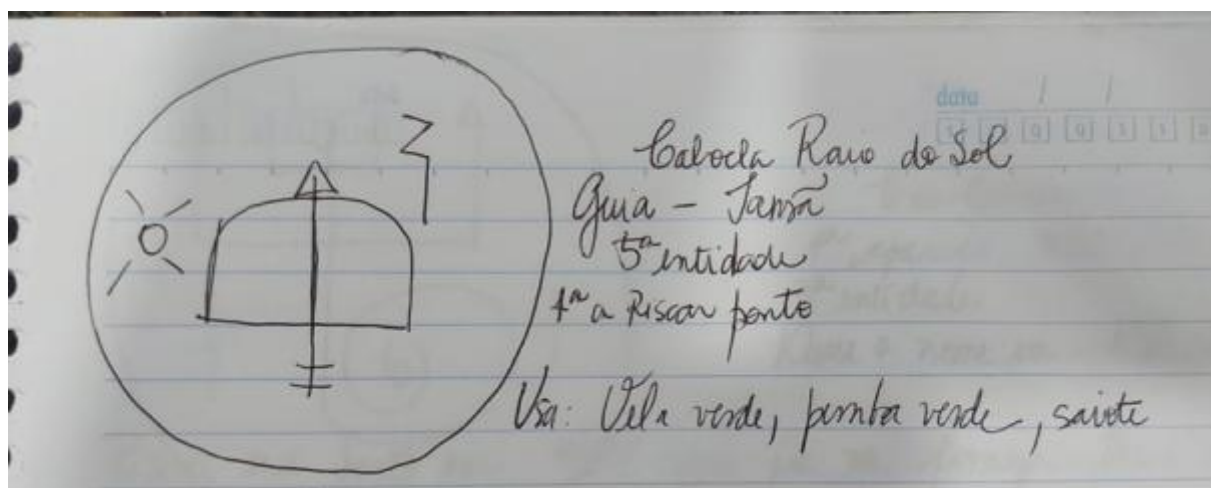 data / /
Cabocla Raio do Sol
Guia - Iansã
5ª entidade
1ª a Riscar ponto
Usa: Vela verde, pemba verde, saiote